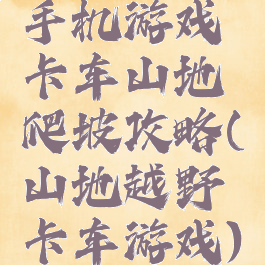 手机游戏
卡车山地
爬坡攻略(
山地越野
卡车游戏)